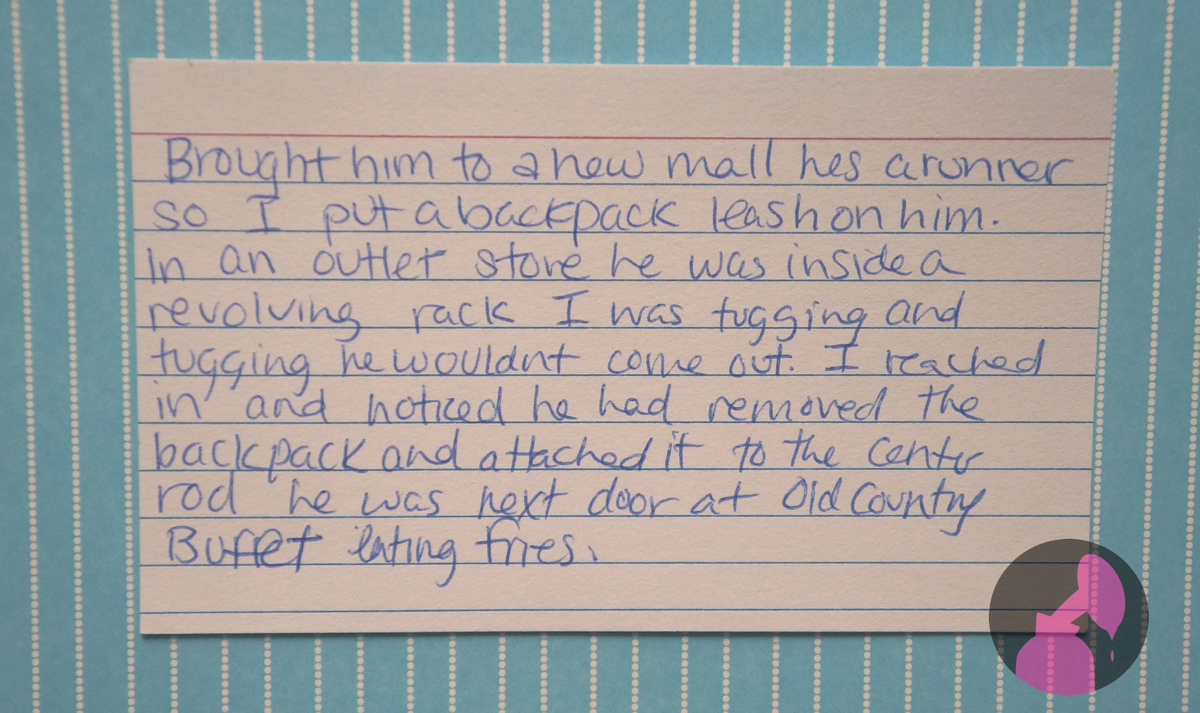 Brought him to a new mall hes a runner
so I put a backpack leash on him.
In an outlet store he was inside a
revolving rack I was tugging and
tugging he wouldnt come out. I reached
in and noticed he had removed the
backpack and attached it to the center
rod he was next door at Old Country
Buffet eating fries.